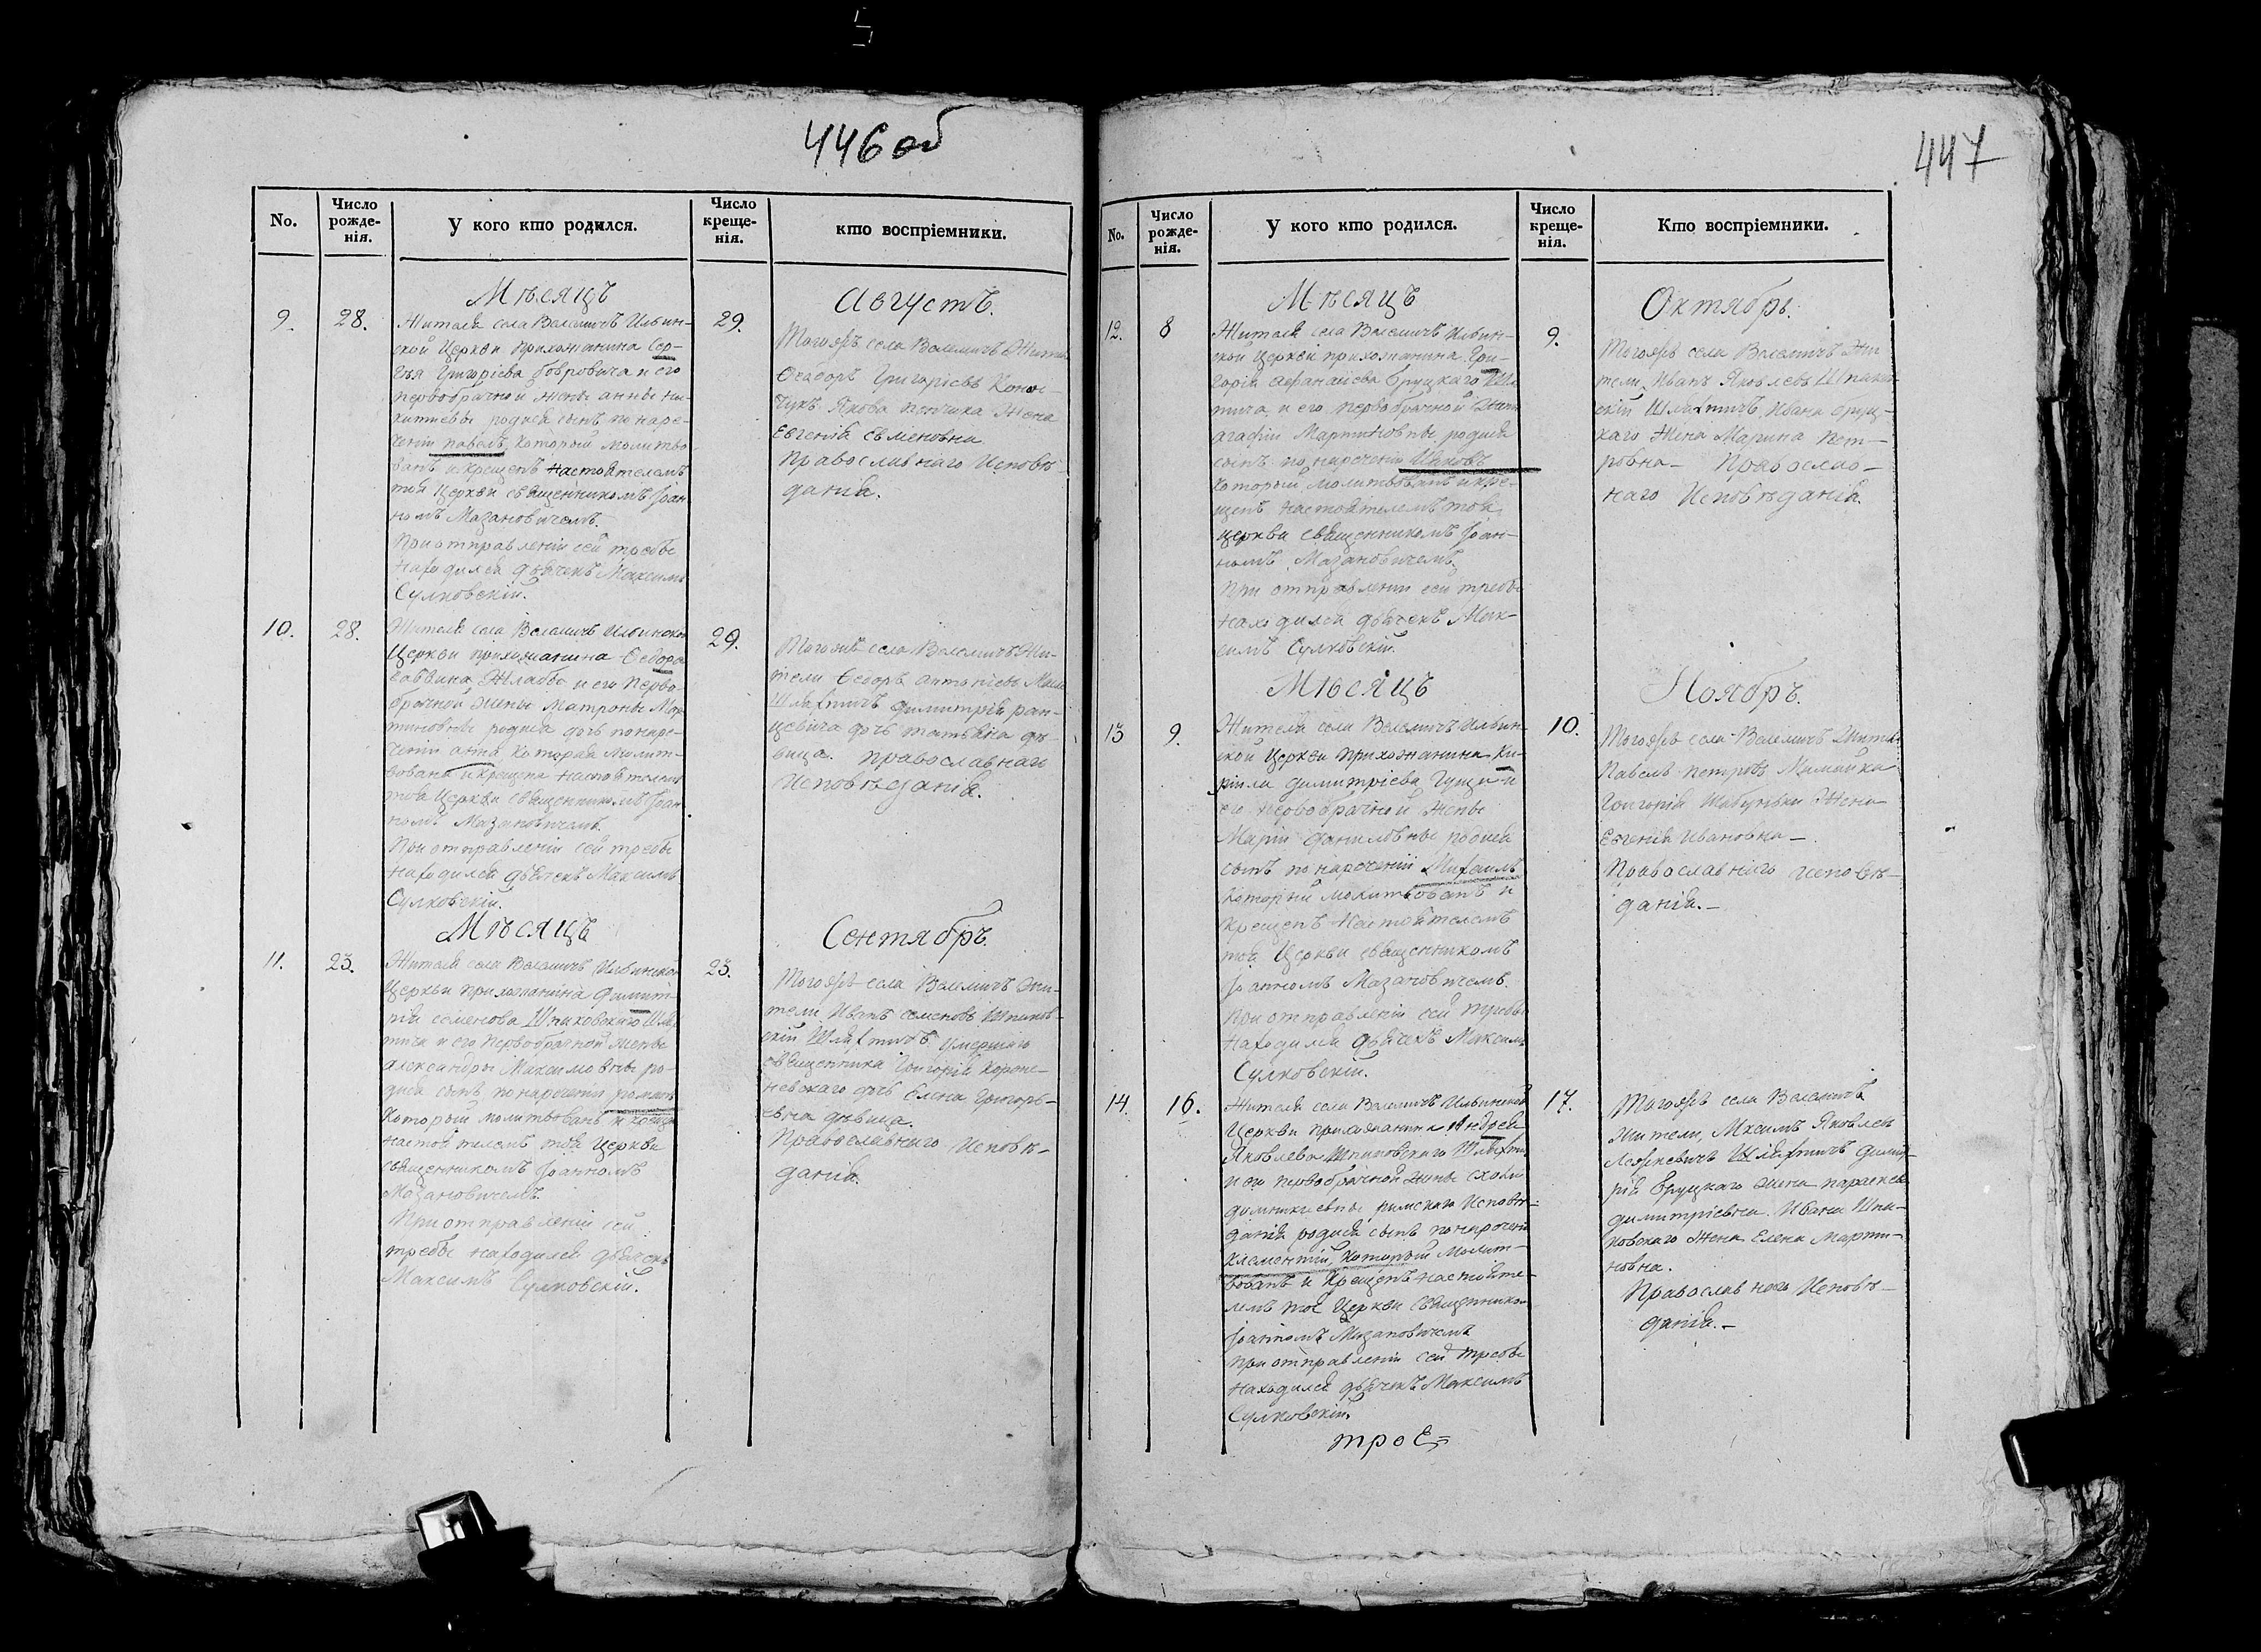 446 об
No.
Число рожде-нія.
У кого кто родился.
Число креще-нія.
кто воспріемники.
Мѣсяцъ
Августъ.
9.
28.
29.
Жителя села Велемичъ Ильин-
ской Церкви прихожанина Сер-
гѣя Григорієва бобровича и его
первобрачной жены анны ни-
китиевы родися сынъ по наре-
ченiи павелъ который молитво
ванъ и крещенъ настоятелемъ
тоя Церкви священникомъ Іоан
номъ Мазановичемъ.
При отправленіи сей требы
находился дьячекъ Максимъ
Сулковскій.
Тогояжъ села Велемичъ Жители
Ѳеодоръ Григорієвъ
Якова жена
Евгенія семеновна
Православнаго Исповѣ-
данія.
10.
28.
29.
Жителя села Велемичъ Ильинской
Церкви прихожанина Ѳедора
Саввина Жлабы и его перво
брачной жены Матроны Мар
тиновны родися дочъ по наре-
ченiи анна которая молит-
вована и крещена настоятелемъ
тоя Церкви священникомъ Іоан
номъ Мазановичемъ.
При отправленіи сей требы
находился дьячекъ Максимъ
Сулковскій.
Тогояжъ села Велемичъ Жи-
тели Ѳедоръ антонієвъ
Шляхтичъ димитрія ран-
цевича дочъ татьяна дѣ-
вица. православнаго
Исповѣданія.
Мѣсяцъ
Сентябръ.
11.
23.
23.
Жителя села Велемичъ Ильинской
Церкви прихожанина димит-
рія семенова Шпиковскаго Шлях
тича и его первобрачной жены
александры Максимовны ро-
дися сынъ по нареченiи романъ
который молитвованъ и крещенъ
настоятелемъ тоя Церкви
священникомъ Іоанномъ
Мазановичемъ.
При отправленіи сей
требы находился дьячекъ
Максимъ Сулковскій.
Тогояжъ села Велемичъ Жи-
тели Иванъ семеновъ Шпиков-
скій Шляхтичъ умершаго
священника Григорія
дочъ Елена Григорь-
евна дѣвица.
Православнаго Исповѣ-
данія.
447
No.
Число рожде-нія.
У кого кто родился.
Число креще-нія.
Кто воспріемники.
Мѣсяцъ
Октябръ.
12.
8
9.
Жителя села Велемичъ Ильин-
ской Церкви прихожанина Гри-
горія афанасієва бруцкаго Шлях
тича и его первобрачной жены
агафіи Мартиновны родися
сынъ по нареченiи Іяковъ
который молитвованъ и кре-
щенъ настоятелемъ тоя
церкви священникомъ Іоан-
номъ Мазановичемъ
При отправленіи сей требы
находился дьячекъ Мак-
симъ Сулковскій.
Тогояжъ села Велемичъ Жи
тели Иванъ Яковлевъ Шпиков-
скій Шляхтичъ, Ивана бруц-
каго Жена Марина Пет-
ровна — Православ-
наго Исповѣданія.
Мѣсяцъ
Ноябръ.
13
9.
10.
Жителя села Велемичъ Ильин-
ской Церкви прихожанина Ки-
рилла димитрієва Гущи и
его первобрачной жены
Маріи даниловны родися
сынъ по нареченiи Михаилъ
который молитвованъ и
крещенъ настоятелемъ
тоя Церкви священникомъ
Іоанномъ Мазановичемъ.
При отправленіи сей требы
находился дьячекъ Максимъ
Сулковскій.
Тогояжъ села Велемичъ Жители
Павелъ Петровъ
Григорія Жена
Евгенія Ивановна —.
Православнаго исповѣ-
данія. —
14.
16.
17.
Жителя села Велемичъ Ильинской
Церкви прихожанина Андрея
Яковлева Шпиковскаго Шляхти
и его первобрачной жены
римскаго Исповѣ-
данія родися сынъ по нареченiи
климентій, который молит-
вованъ и крещенъ настояте-
лемъ тоя Церкви священникомъ
Іоанномъ Мазановичемъ
При отправленіи сей требы
находился дьячекъ Максимъ
Сулковскій.
трое=
Тогояжъ села Велемичъ
жители, Яковлев
Шляхтичъ дими
рія бруцкаго жена параскева
димитрієвна. Ивана Шпи-
ковскаго Жена Елена Марти-
новна.
Православнаго Исповѣ-
данія. —